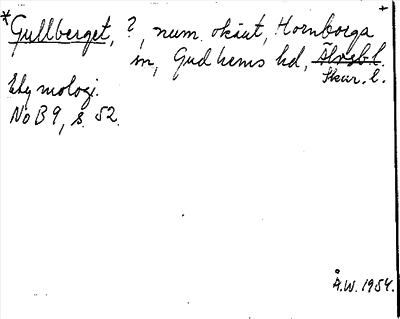 +
*Gullberget, ?, num. okänt, Hornborga
sn, Gudhems hd, Älvsb.l.
Skar. l.
Etymologi.
NoB 9, s. 52.
Å.W. 1954.